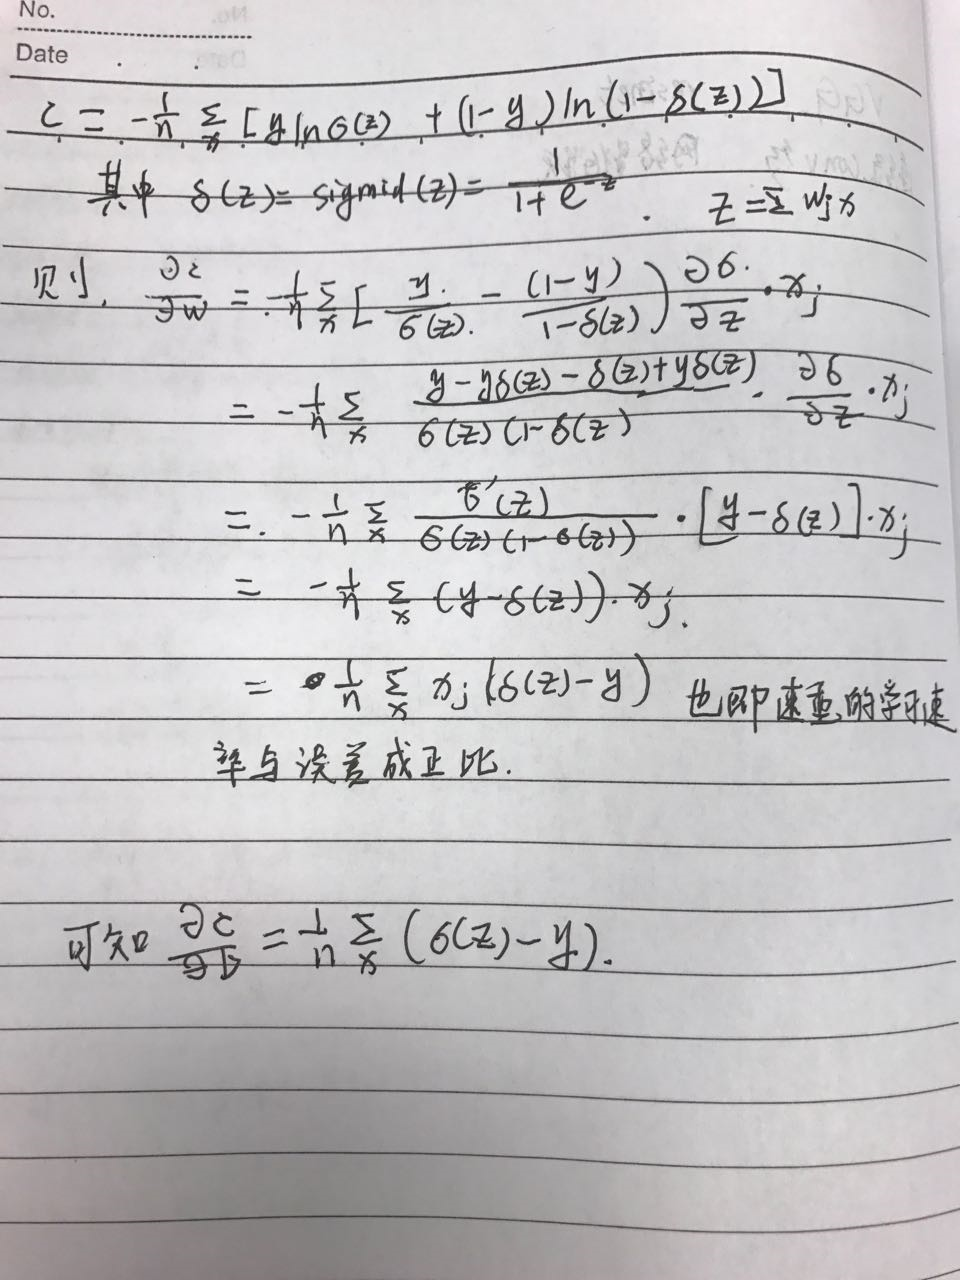 No.
Date
C = -1/n Σ_x [y ln σ(z) + (1-y) ln (1-σ(z))]
其中 σ(z) = sigmid(z) = 1/(1+e^{-z}) . z = Σ w_j x
则, ∂c/∂w = -1/n Σ_x [ y/σ(z) - (1-y)/(1-σ(z)) ) ∂σ/∂z · x_j
= -1/n Σ_x (y-yσ(z)-σ(z)+yσ(z))/(σ(z)(1-σ(z)) · ∂σ/∂z · x_j
= -1/n Σ_x σ'(z)/(σ(z)(1-σ(z))) · [y-σ(z)]·x_j
= -1/n Σ_x (y-σ(z))·x_j.
= 1/n Σ_x x_j (σ(z)-y) 也即 重的学习速
率与误差成正比.
可知 ∂c/∂b = 1/n Σ_x (σ(z)-y).